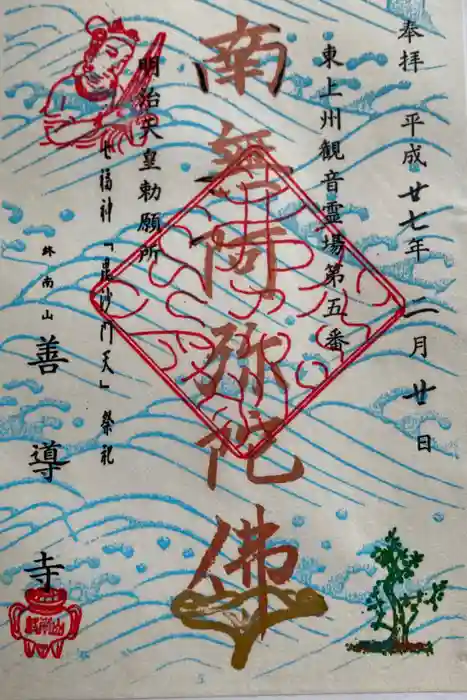 奉拝　平成廿七年二月廿日
東上州観音霊場第五番
南無阿弥陀佛
明治天皇勅願所
七福神「毘沙門天」祭礼
終南山　善導寺